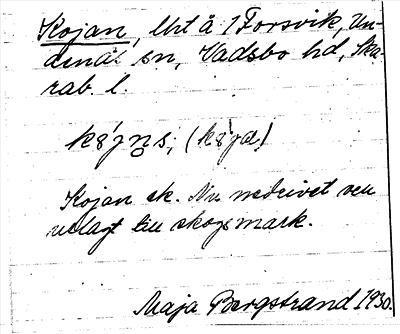 Kojan, lht å 1 Forsvik, Un-
denäs sn, Vadsbo hd, Ska-
rab. l.
Kojan sk. Nu nedrivet ven
utlagt till skogsmark.
Maja Bergstrand 1930.